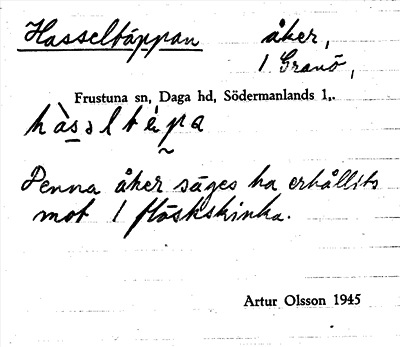 Hasseltäppan åker,
1 Granö,
Frustuna sn, Daga hd, Södermanlands l,.
Denna åker säges ha erhållits
mot 1 fläskskinka.
Artur Olsson 1945